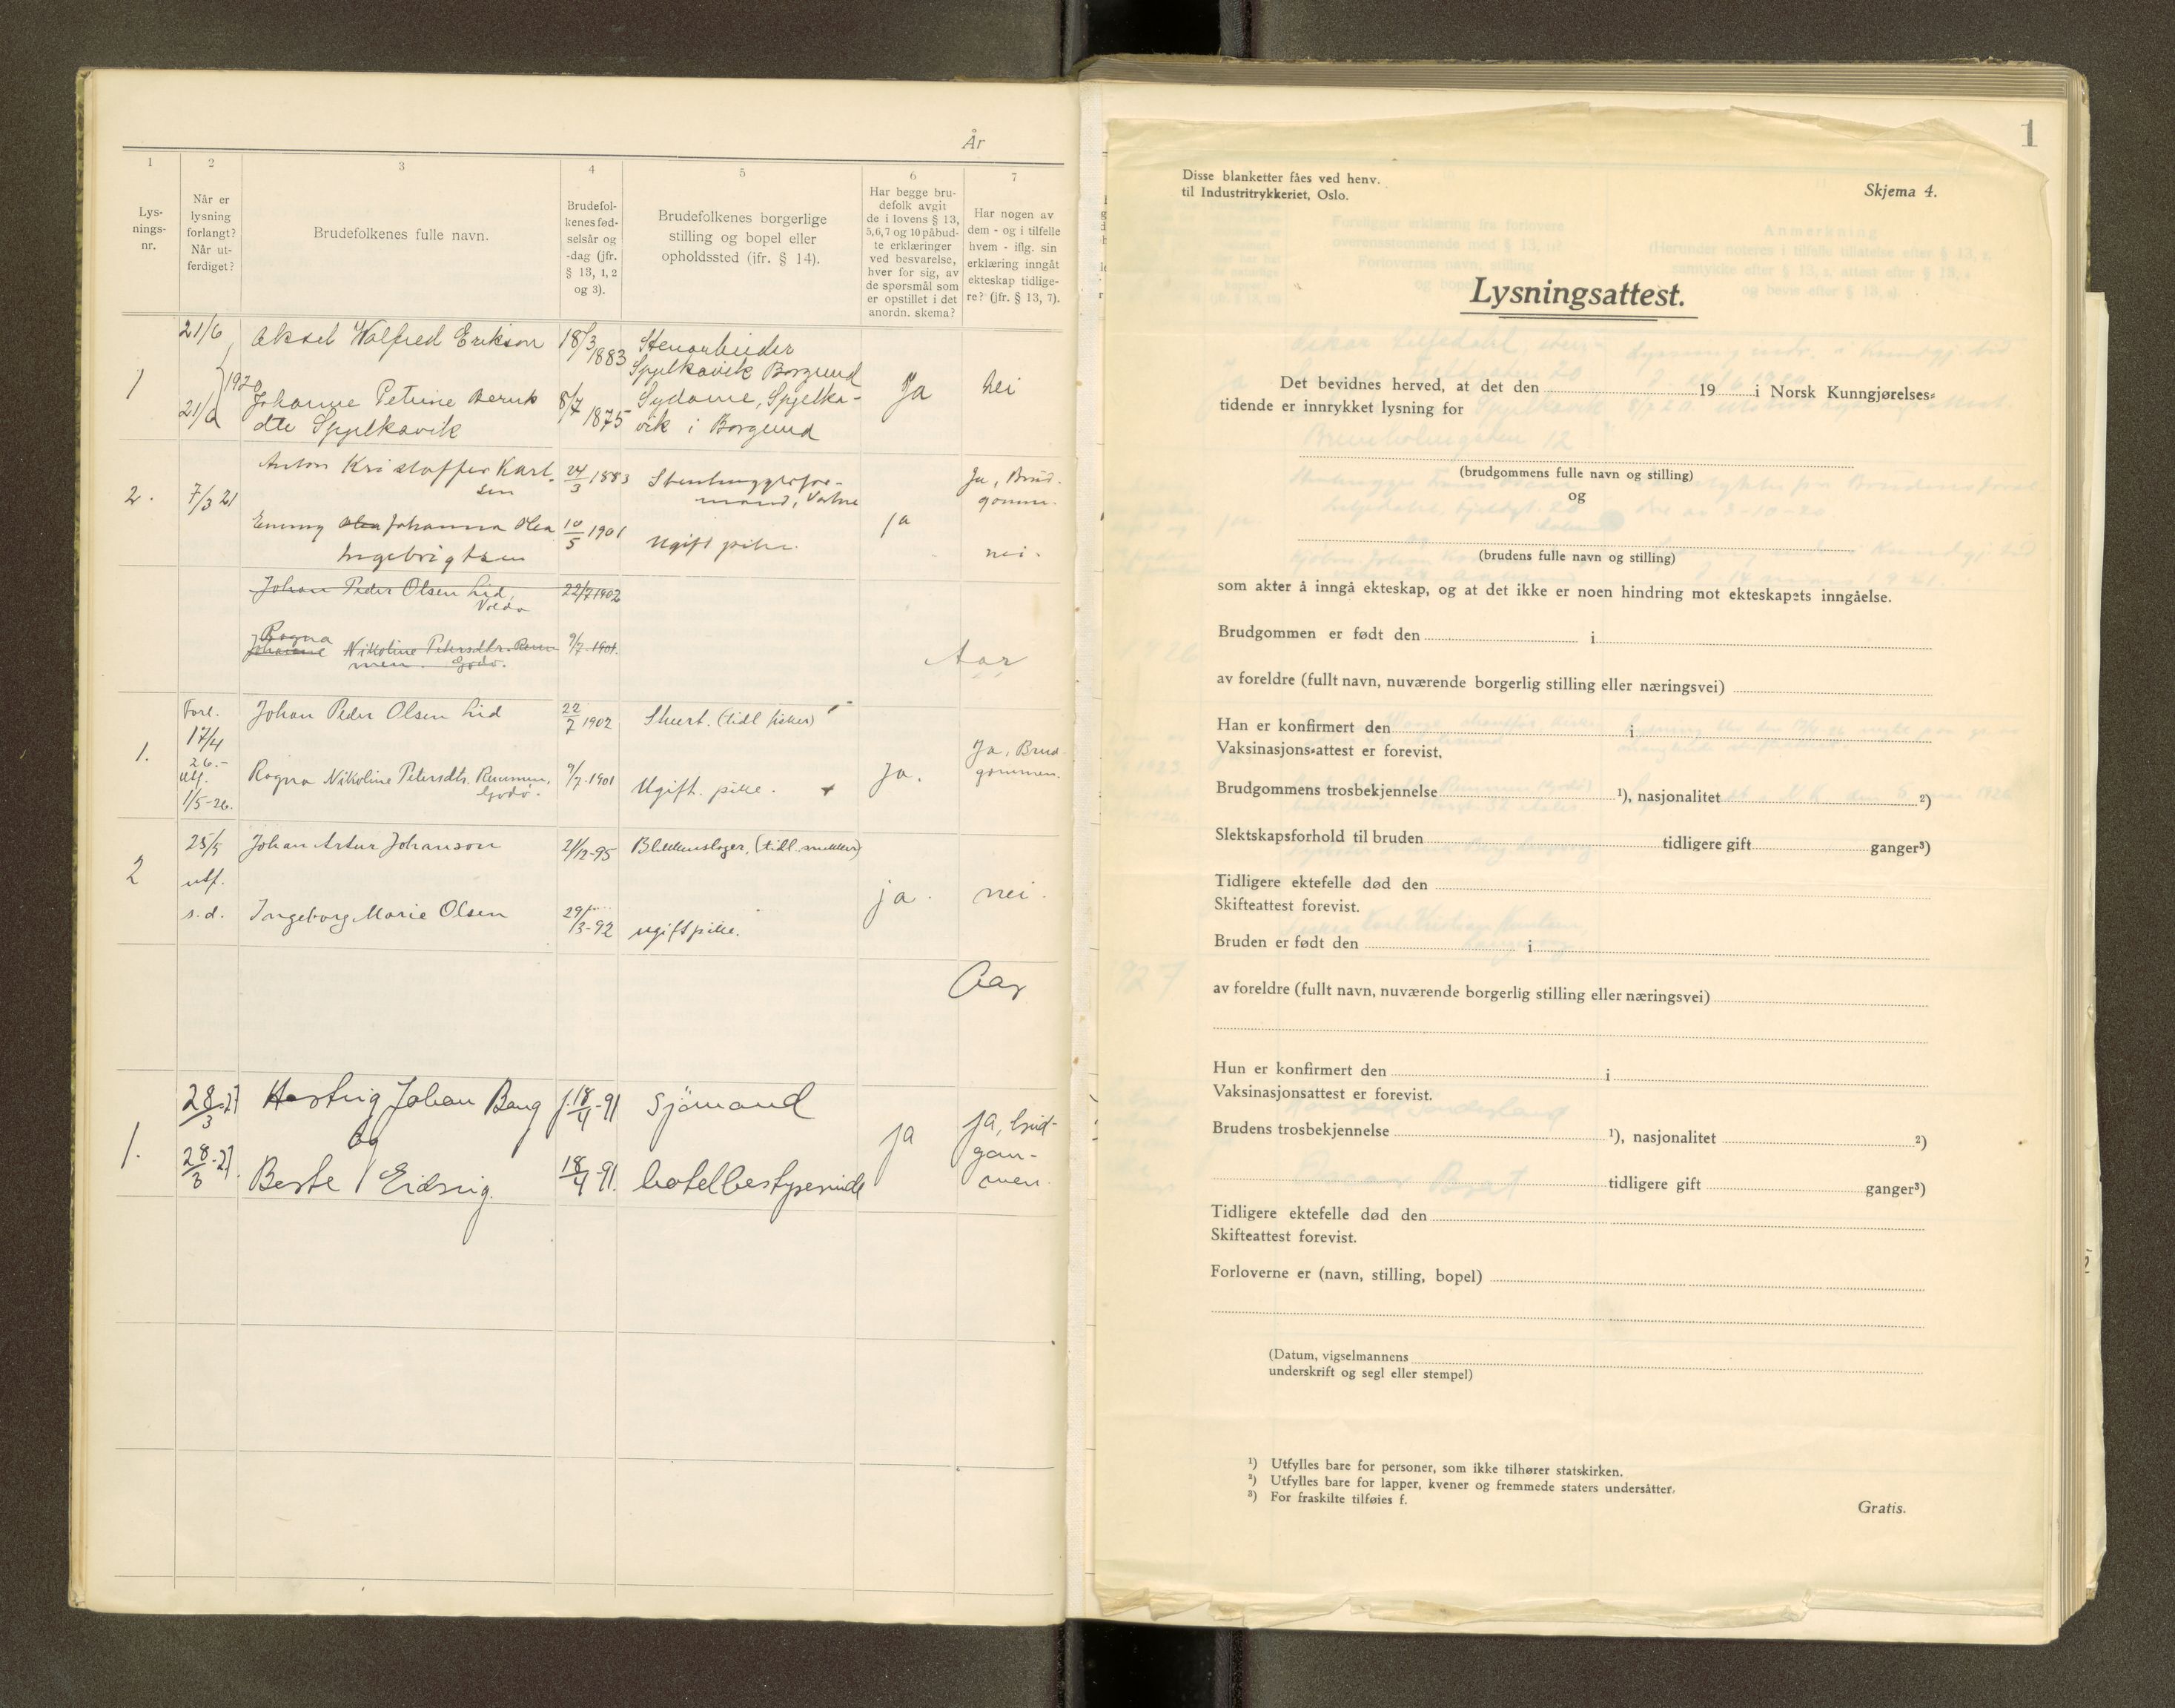 År
1
2
3
4
5
6
7
Lys-
nings-
nr.
Når er
lysning
forlangt?
Når ut-
ferdiget?
Brudefolkenes fulle navn.
Brudefol-
kenes fød-
selsår og
-dag (jfr.
§ 13, 1, 2
og 3).
Brudefolkenes borgerlige
stilling og bopel eller
opholdssted (ifr. § 14).
Har begge bru-
defolk avgit
de i lovens § 13,
5,6,7 og 10 påbud-
te erklæringer
ved besvarelse,
hver for sig, av
de spørsmål som
er opstillet i det
anordn. skema?
Har nogen av
dem - og i tilfelle
hvem - iflg. sin
erklæring inngåt
ekteskap tidlige-
re? (jfr. § 13, 7).
1
21/6
1920
Aksel Walfred Erikson
18/3 1883
Stenarbeider
Spjelkavik Borgund
Johanne Petrine
Spjelkavik
8/7 1875
Sydame, Spjelka-
vik i Borgund
Ja
nei
2.
7/3 21
Anton Kristoffer Karl-
sen
24/3 1883
Emmy Olea Johanna Olea
Ingebrigtsen
10/5 1901
Ugift pike.
ja
Ja, Brud-
gomm.
nei.
Johan Peder Olsen Lid,
Volda
22/7 1902
Ragna
Johanne Nikoline Petersdtr. Rem
men. Godø.
9/7 1901.
Aar
1.
Forl.
17/4
26.-
utf.
1/5-26.
Johan Peder Olsen Lid
22/7 1902
Stuert. (tidl fisker)
Ragna Nikoline Petersdtr. Remmen,
Godø.
9/7 1901
Ugift. pike.
Ja.
Ja, Brud
gommen.
2
25/5
utf.
s.d.
Johan Artur Johanson
21/12-95
Blikkenslager, (tidl. snekker)
Ingeborg Marie Olsen
29/3-92
ugift pike.
ja.
nei.
Aar
1.
28/3-27
28/3-27.
Hartvig Johan Bang
og
f. 18/4-91
Sjömand
Berte Eidsvig.
18/4-91.
hotelbestyrerinde
ja
ja, brud-
gom-
men.
1
Disse blanketter fåes ved henv.
til Industritrykkeriet, Oslo.
Skjema 4.
Lysningsattest.
Det bevidnes herved, at det den 19 i Norsk Kunngjørelses=
tidende er innrykket lysning for
(brudgommens fulle navn og stilling)
og
(brudens fulle navn og stilling)
som akter å inngå ekteskap, og at det ikke er noen hindring mot ekteskapets inngåelse.
Brudgommen er født den i
av foreldre (fullt navn, nuværende borgerlig stilling eller næringsvei)
Han er konfirmert den i
Vaksinasjons=attest er forevist.
Brudgommens trosbekjennelse ¹), nasjonalitet ²)
Slektskapsforhold til bruden tidligere gift ganger³)
Tidligere ektefelle død den
Skifteattest forevist.
Bruden er født den i
av foreldre (fullt navn, nuværende borgerlig stilling eller næringsvei)
Hun er konfirmert den i
Vaksinasjonsattest er forevist.
Brudens trosbekjennelse ¹), nasjonalitet ²)
tidligere gift ganger³)
Tidligere ektefelle død den
Skifteattest forevist.
Forloverne er (navn, stilling, bopel)
(Datum, vigselmannens
underskrift og segl eller stempel)
¹) Utfylles bare for personer, som ikke tilhører statskirken.
²) Utfylles bare for lapper, kvener og fremmede staters undersåtter.
³) For fraskilte tilføies f.
Gratis.